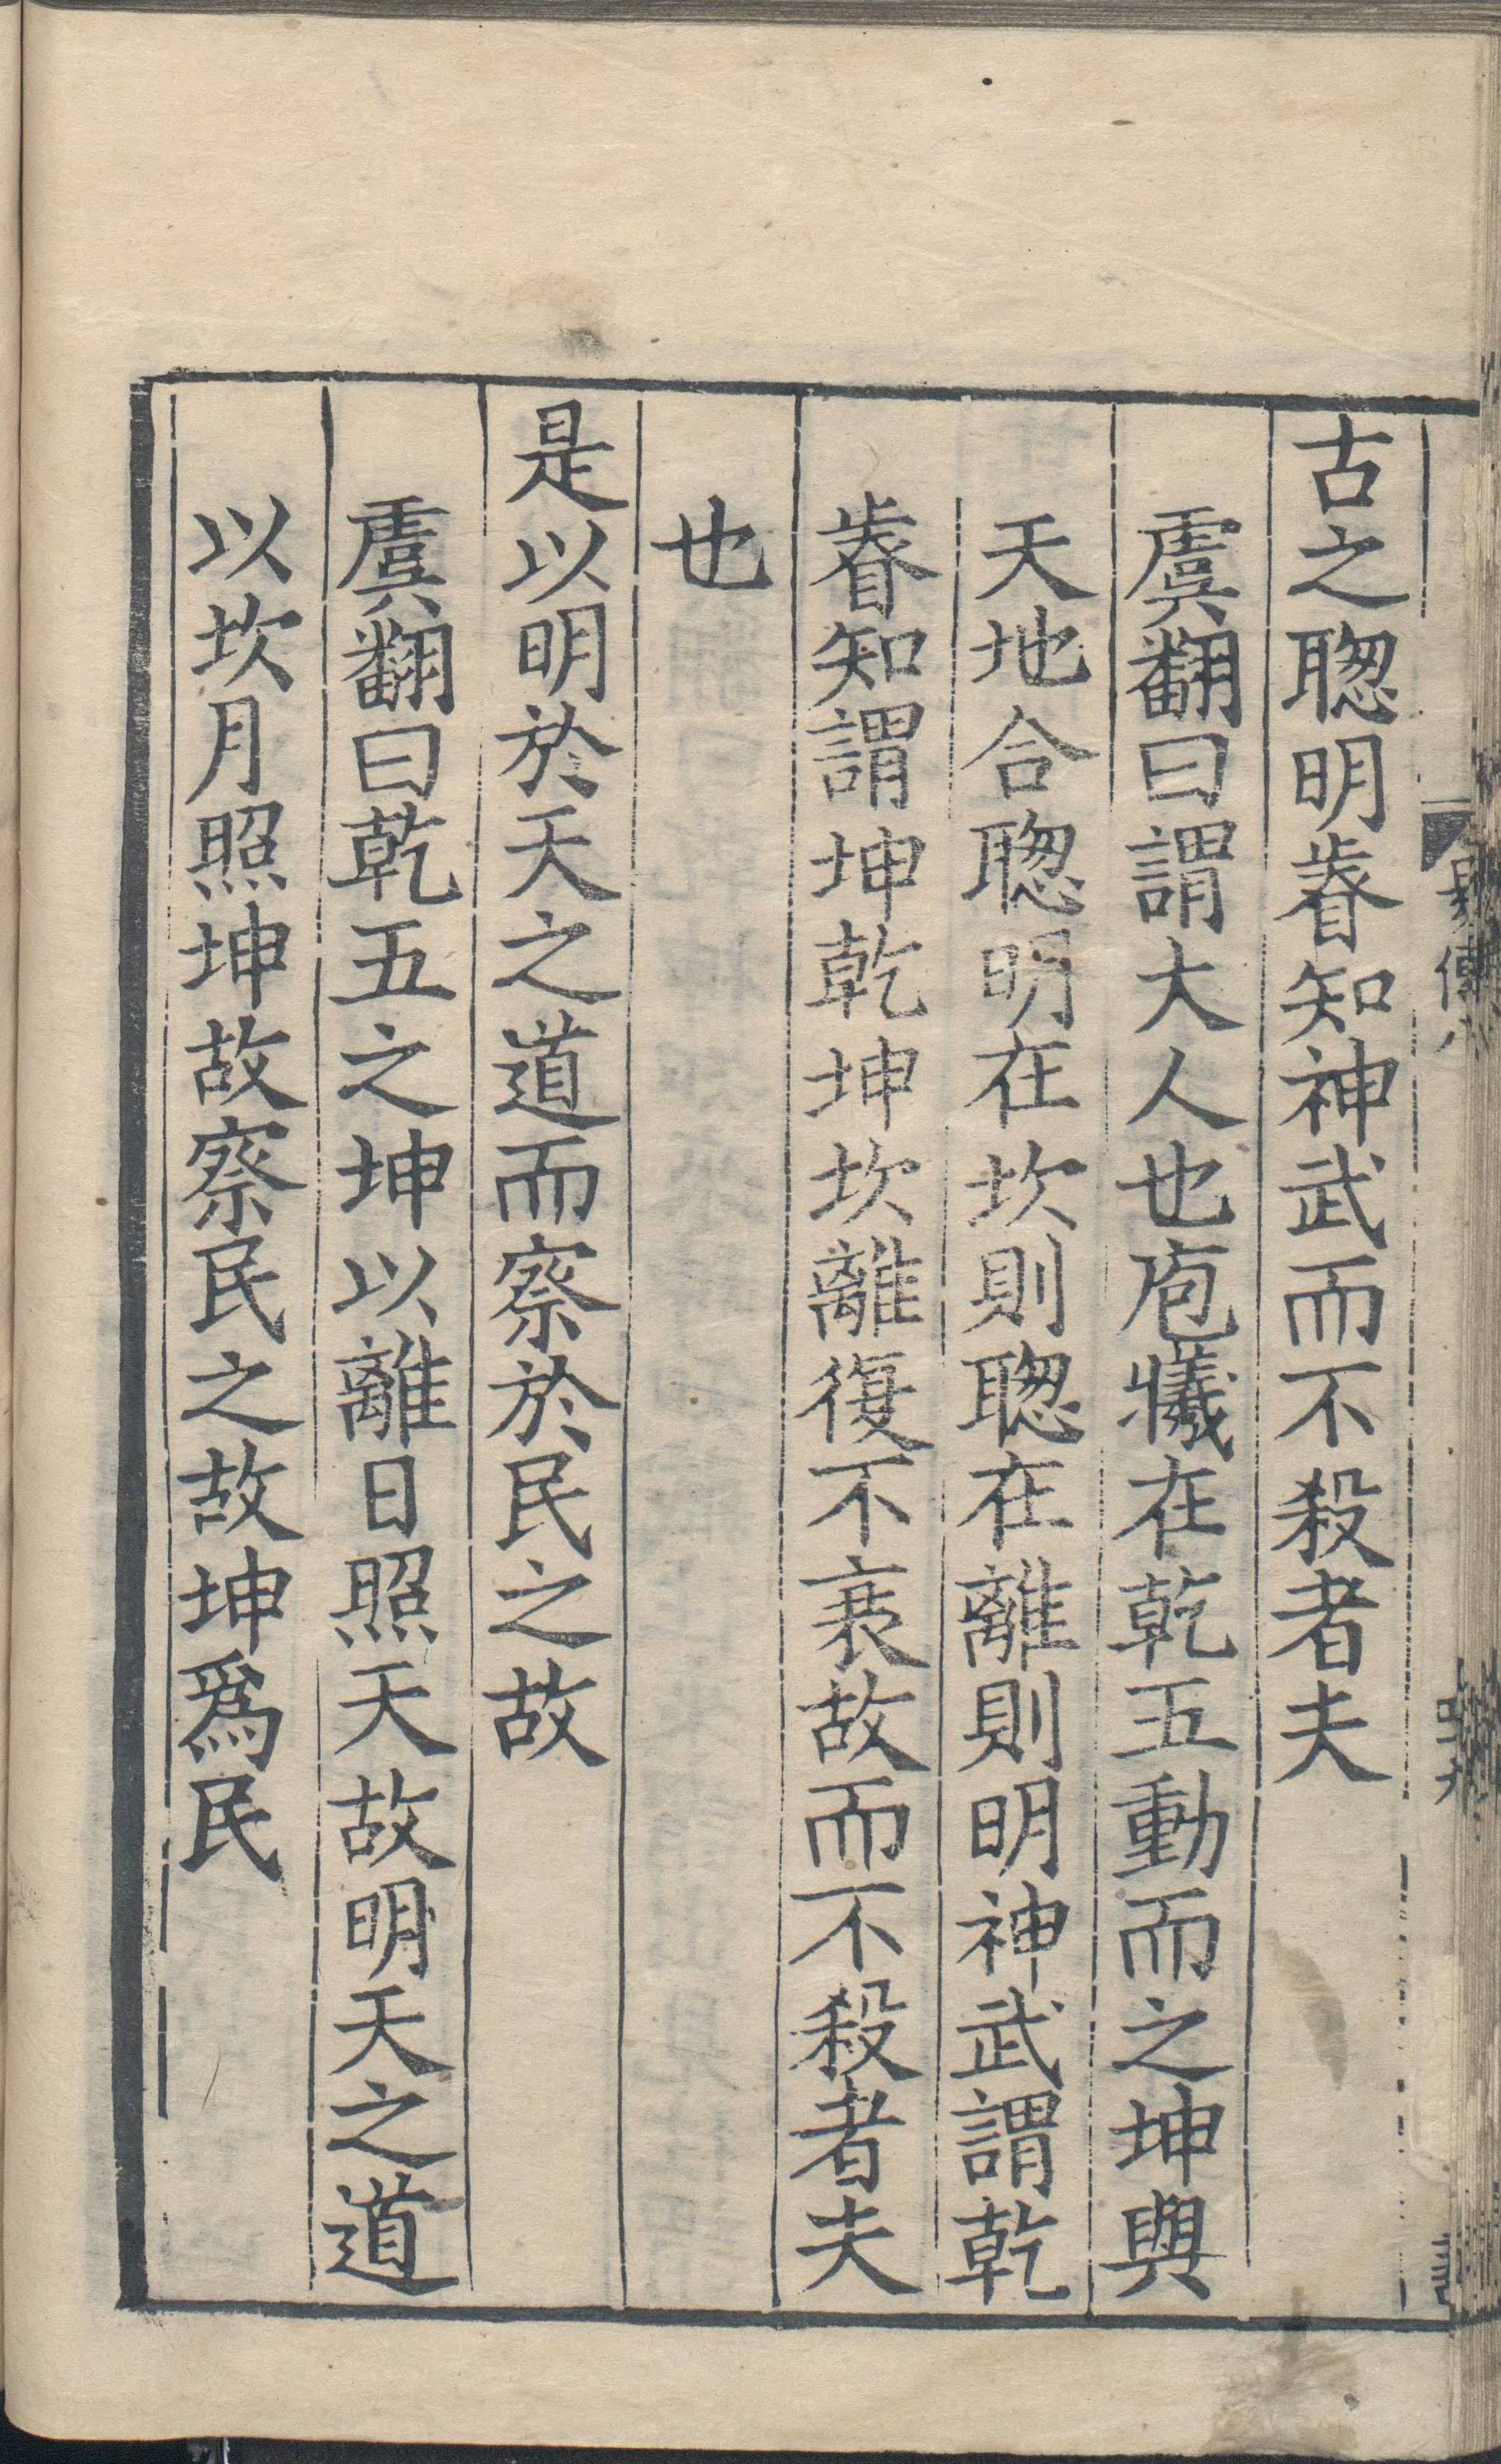 古之聦明睿知神武而不殺者夫
虞翻曰謂大人也庖犧在乾五動而之坤與
天地合聦明在坎則聦在離則明神武謂乾
睿知謂坤乾坤坎離復不衰故而不殺者夫
也
是以明於天之道而察於民之故
虞翻曰乾五之坤以離日照天故明天之道
以坎月照坤故察民之故坤爲民